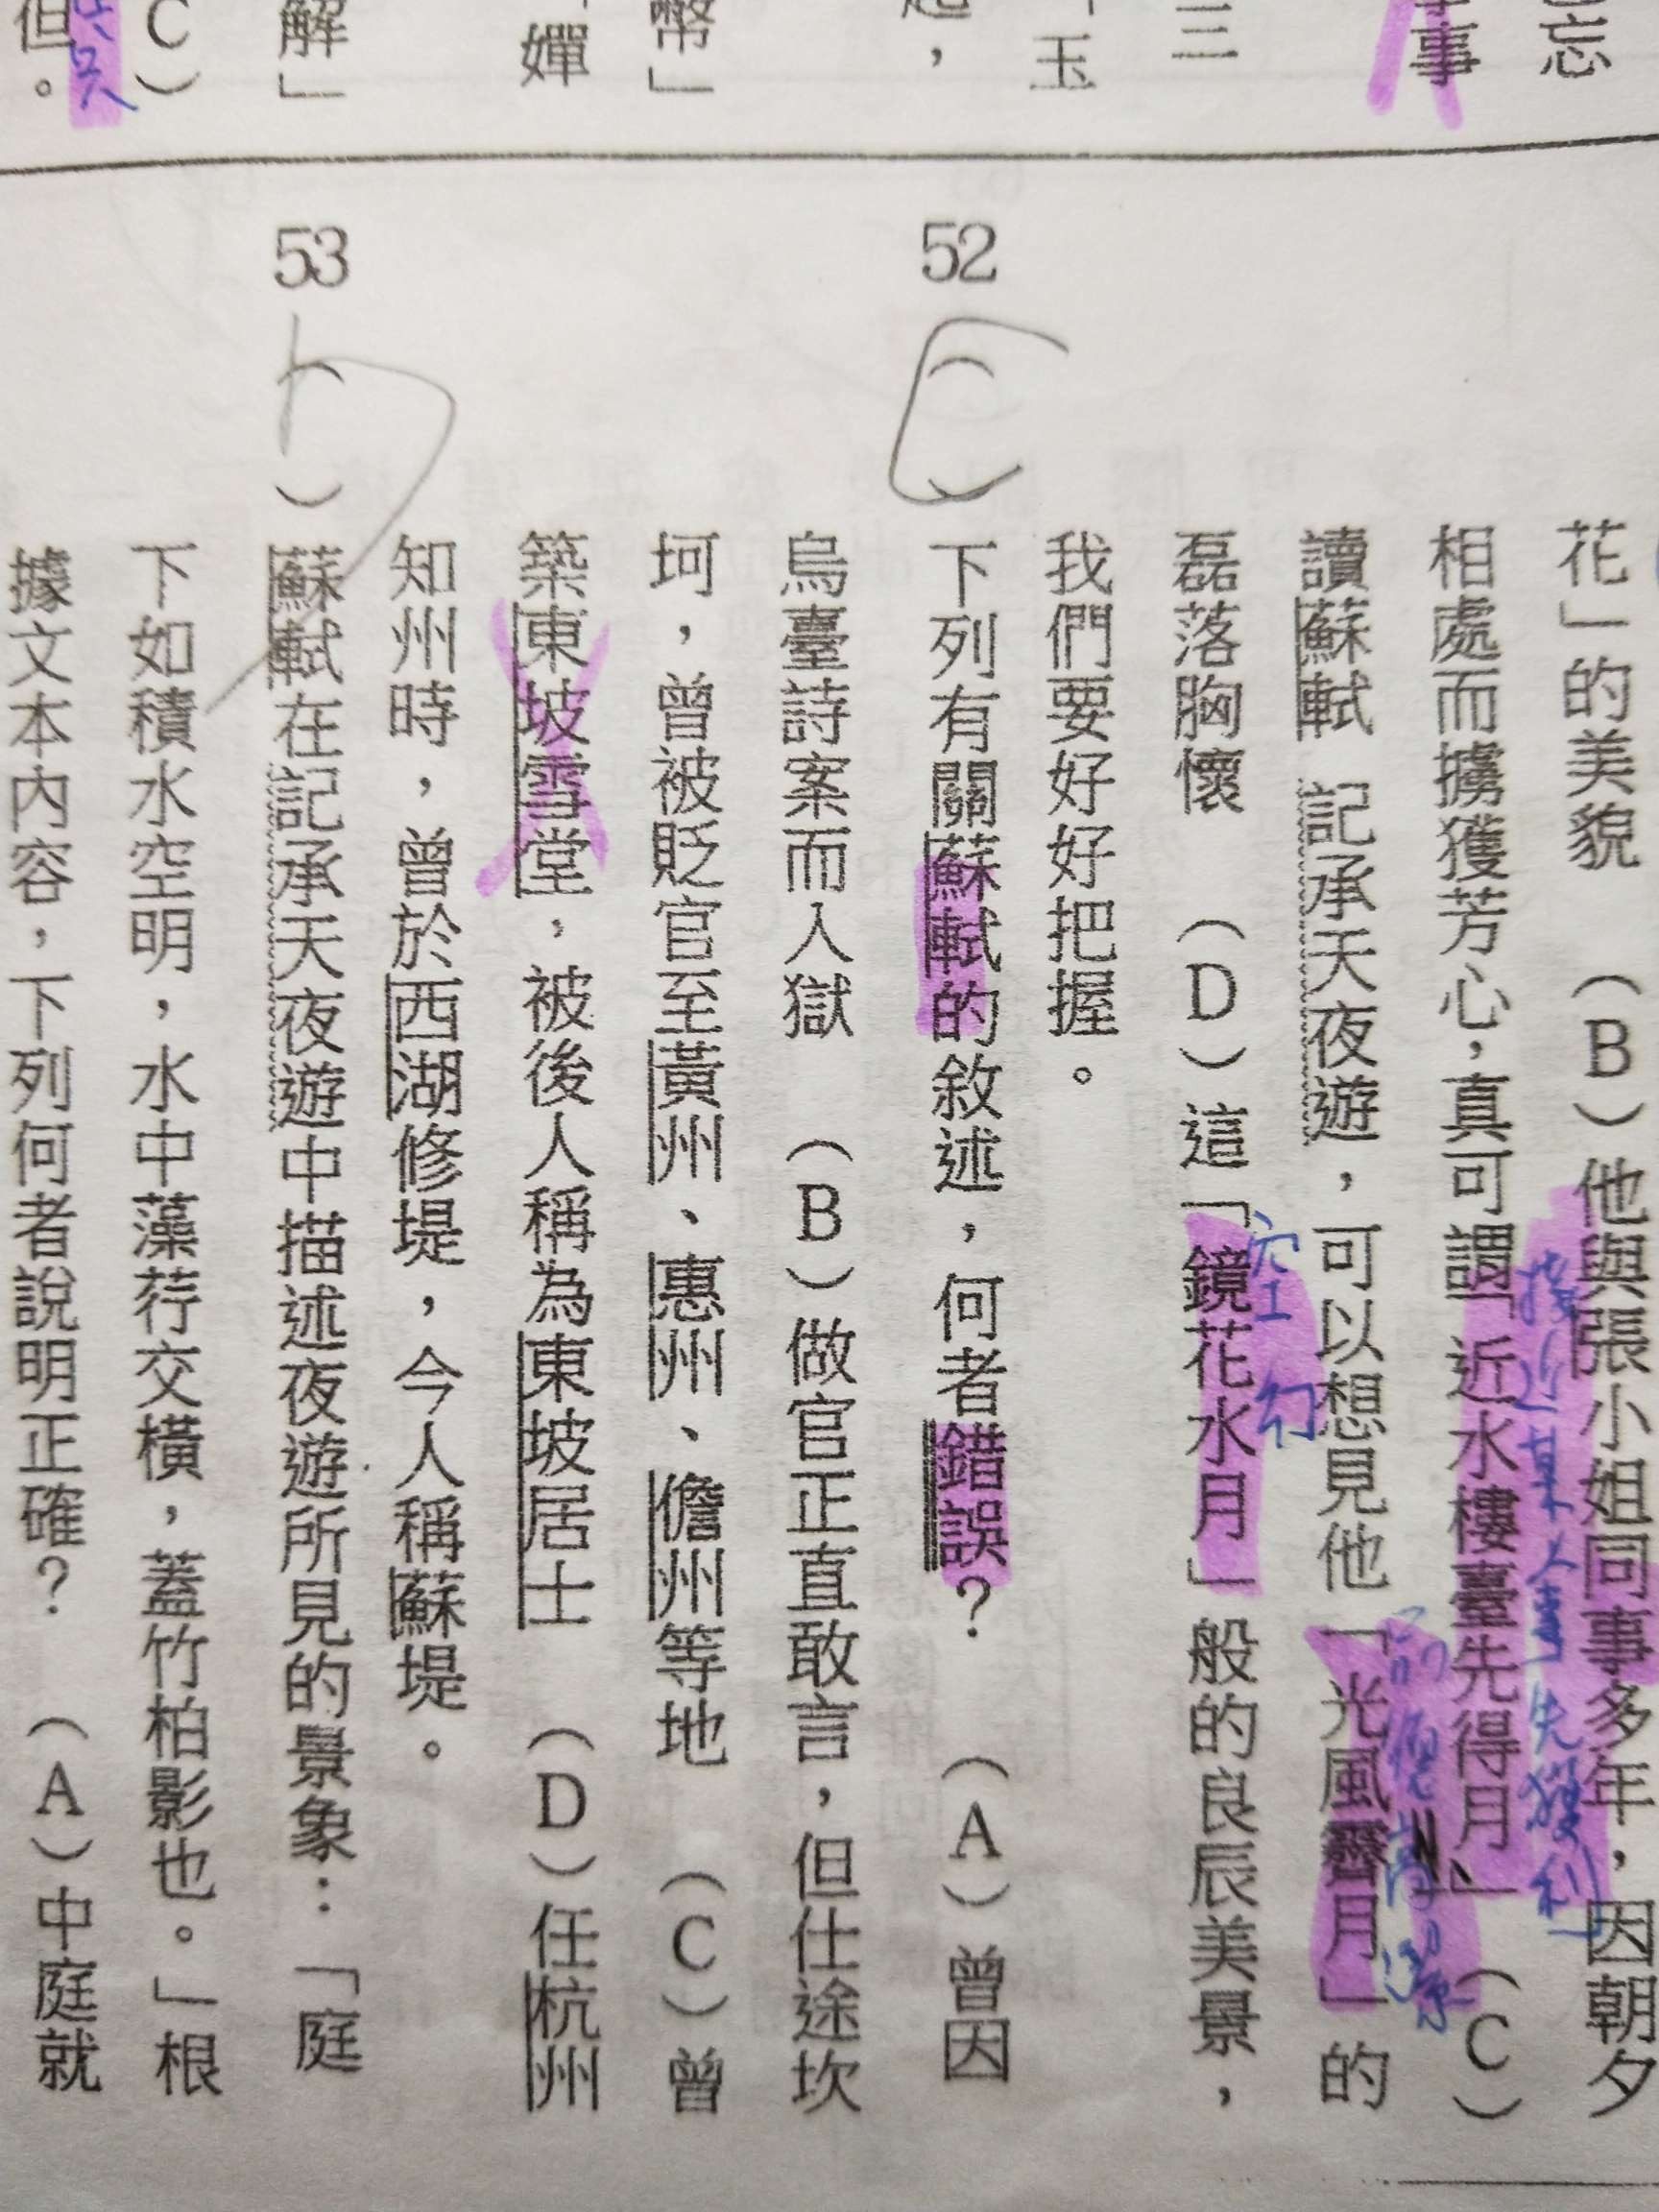 忘
事
三
「玉
，
幣」
嬋
解」
C）
但。
花」的美貌　（B）他與張小姐同事多年，因朝夕
接近某人事先獲利
相處而擄獲芳心，真可謂「近水樓臺先得月」　（C）
讀蘇軾　記承天夜遊，可以想見他「光風霽月」的
空幻
磊落胸懷　（D）這「鏡花水月」般的良辰美景，
我們要好好把握。
52（C）下列有關蘇軾的敘述，何者錯誤？　（A）曾因
烏臺詩案而入獄　（B）做官正直敢言，但仕途坎
坷，曾被貶官至黃州、惠州、儋州等地　（C）曾
築東坡雪堂，被後人稱為東坡居士　（D）任杭州
知州時，曾於西湖修堤，今人稱蘇堤。
53（D）蘇軾在記承天夜遊中描述夜遊所見的景象：「庭
下如積水空明，水中藻荇交橫，蓋竹柏影也。」根
據文本內容，下列何者說明正確？　（A）中庭就